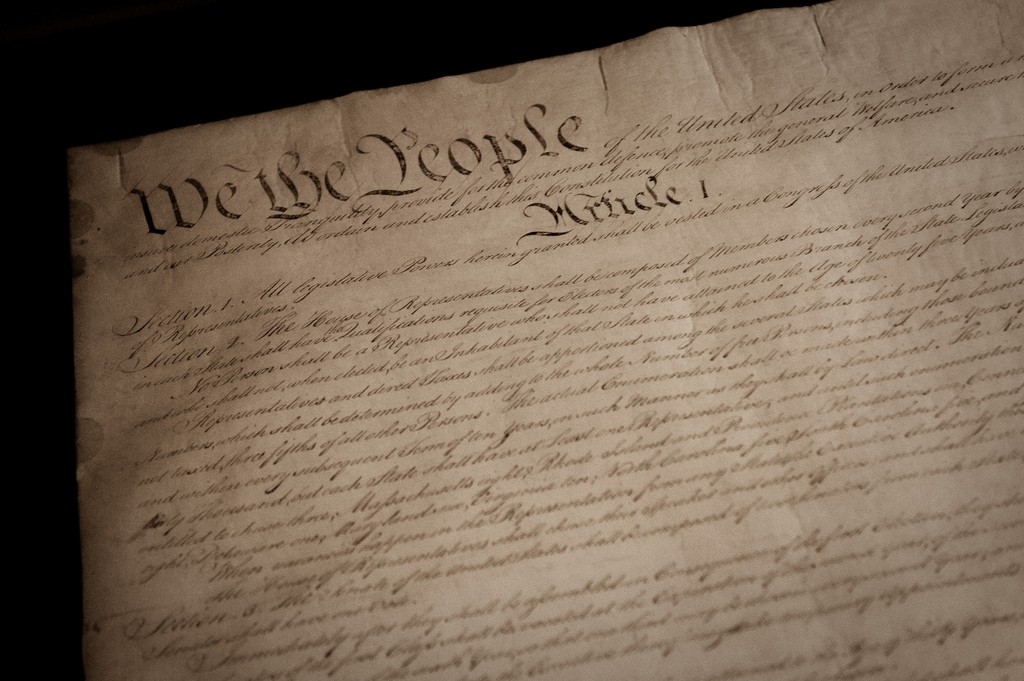 We the People of the United States, in Order to form a
insure domestic Tranquility, provide for the common defence, promote the general Welfare, and secure
and our Posterity, do ordain and establish this Constitution for the United States of America.
Article. I.
Section. 1. All legislative Powers herein granted shall be vested in a Congress of the United States,
of Representatives.
Section. 2. The House of Representatives shall be composed of Members chosen every second Year by
in each State shall have the Qualifications requisite for Electors of the most numerous Branch of the State
No Person shall be a Representative who shall not have attained to the Age of twenty five Years,
and who shall not, when elected, be an Inhabitant of that State in which he shall be chosen.
Representatives and direct Taxes shall be apportioned among the several States which may be
Numbers, which shall be determined by adding to the whole Number of free Persons, including those bound
not taxed, three fifths of all other Persons. The actual Enumeration shall be made within three Years of
and within every subsequent Term of ten Years, in such Manner as they shall by Law direct. The
thirty Thousand, but each State shall have at Least one Representative; and until such enumeration
entitled to chuse three, Massachusetts eight, Rhode Island and Providence Plantations one,
eight, Delaware one, Maryland six, Virginia ten, North Carolina five, South Carolina five, and
When vacancies happen in the Representation from any State, the Executive Authority
The House of Representatives shall chuse their Speaker and other Officers; and shall have
Section. 3. The Senate of the United States shall be composed of two Senators from each State,
Senator shall have one Vote.
Immediately after they shall be assembled in Consequence of the first Election,